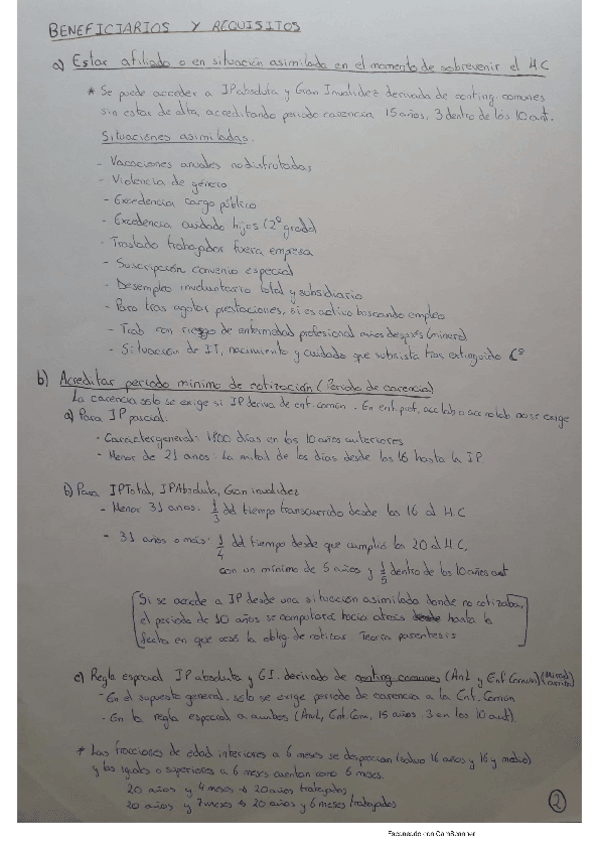 BENEFICIARIOS Y REQUISITOS
a) Estar afiliado o en situación asimilada en el momento de sobrevenir el H.C
* Se puede acceder a IP absoluta y Gran Invalidez derivada de conting. comunes
sin estar de alta, acreditando periodo carencia, 15 años, 3 dentro de los 10 ant.
Situaciones asimiladas.
- Vacaciones anuales no disfrutadas
- Violencia de género
- Excedencia cargo público
- Excedencia cuidado hijos (2º grado)
- Traslado trabajador fuera empresa
- Suscripción convenio especial
- Desempleo involuntario total y subsidiario
- Paro tras agotar prestaciones, si es activo buscando empleo
- Trab. con riesgo de enfermedad profesional años después (minero)
- Situación de IT, nacimiento y cuidado que subsista tras extinguido Cº
b) Acreditar periodo mínimo de cotización (Periodo de carencia)
La carencia solo se exige si IP deriva de enf. común. En enf. prof, acc lab o acc no lab no se exige
a) Para IP parcial:
- Carácter general: 1800 días en los 10 años anteriores
- Menor de 21 años: La mitad de los días desde los 16 hasta la IP.
b) Para IPTotal, IPAbsoluta, Gran invalidez
- Menor 31 años: 1/3 del tiempo transcurrido desde los 16 al H.C
- 31 años o más: 1/4 del tiempo desde que cumplió los 20 al H.C,
con un mínimo de 5 años y 1/5 dentro de los 10 años ant
[Si se accede a IP desde una situación asimilada donde no cotizaba,
el periodo de 10 años se computará hacia atrás hasta la
fecha en que cesó la oblig de cotizar. Teoría paréntesis]
c) Regla especial IP absoluta y GI. derivado de conting comunes (Anl y Enf Común)
- En el supuesto general, solo se exige periodo de carencia a la Enf. Común
- En la regla especial a ambos (Anl, Enf. Com, 15 años, 3 en los 10 ant).
* Las fracciones de edad inferiores a 6 meses se desprecian (salvo 16 años y 16 y medio)
y las iguales o superiores a 6 meses cuentan como 6 meses.
20 años y 4 meses → 20 años trabajados
20 años y 7 meses → 20 años y 6 meses trabajados
2
Escaneado con CamScanner